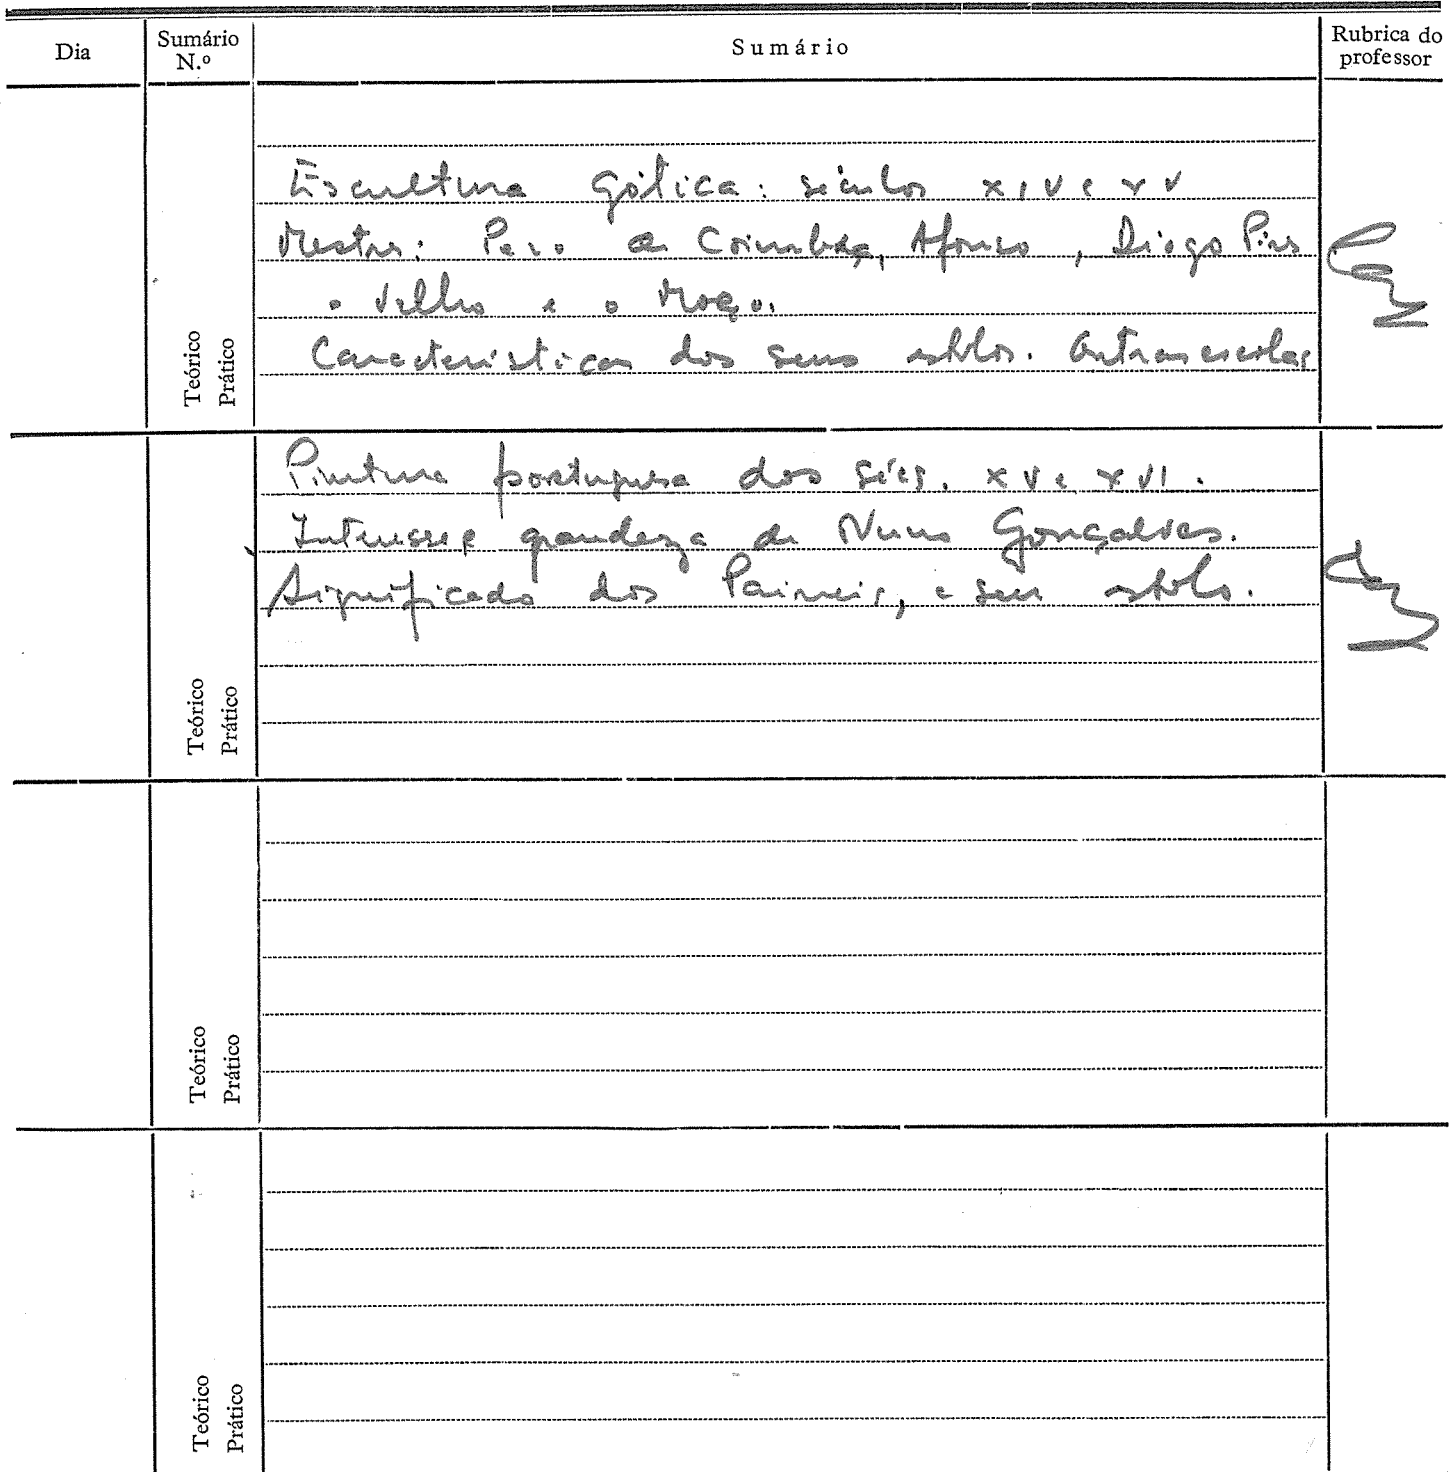 Dia
Sumário
N.º
Sumário
Rubrica do
professor
Escultura gótica: séculos XIV e XV
Mestres: Pero de Coimbra, Afonso, Diogo Pires
o Velho e o Moço.
Características dos seus estilos. Outras escolas
Teórico
Prático
Pintura portuguesa dos sécs. XV e XVI.
Interesse e grandeza de Nuno Gonçalves.
Significado dos Paineis, e seu estilo.
Teórico
Prático
Teórico
Prático
Teórico
Prático